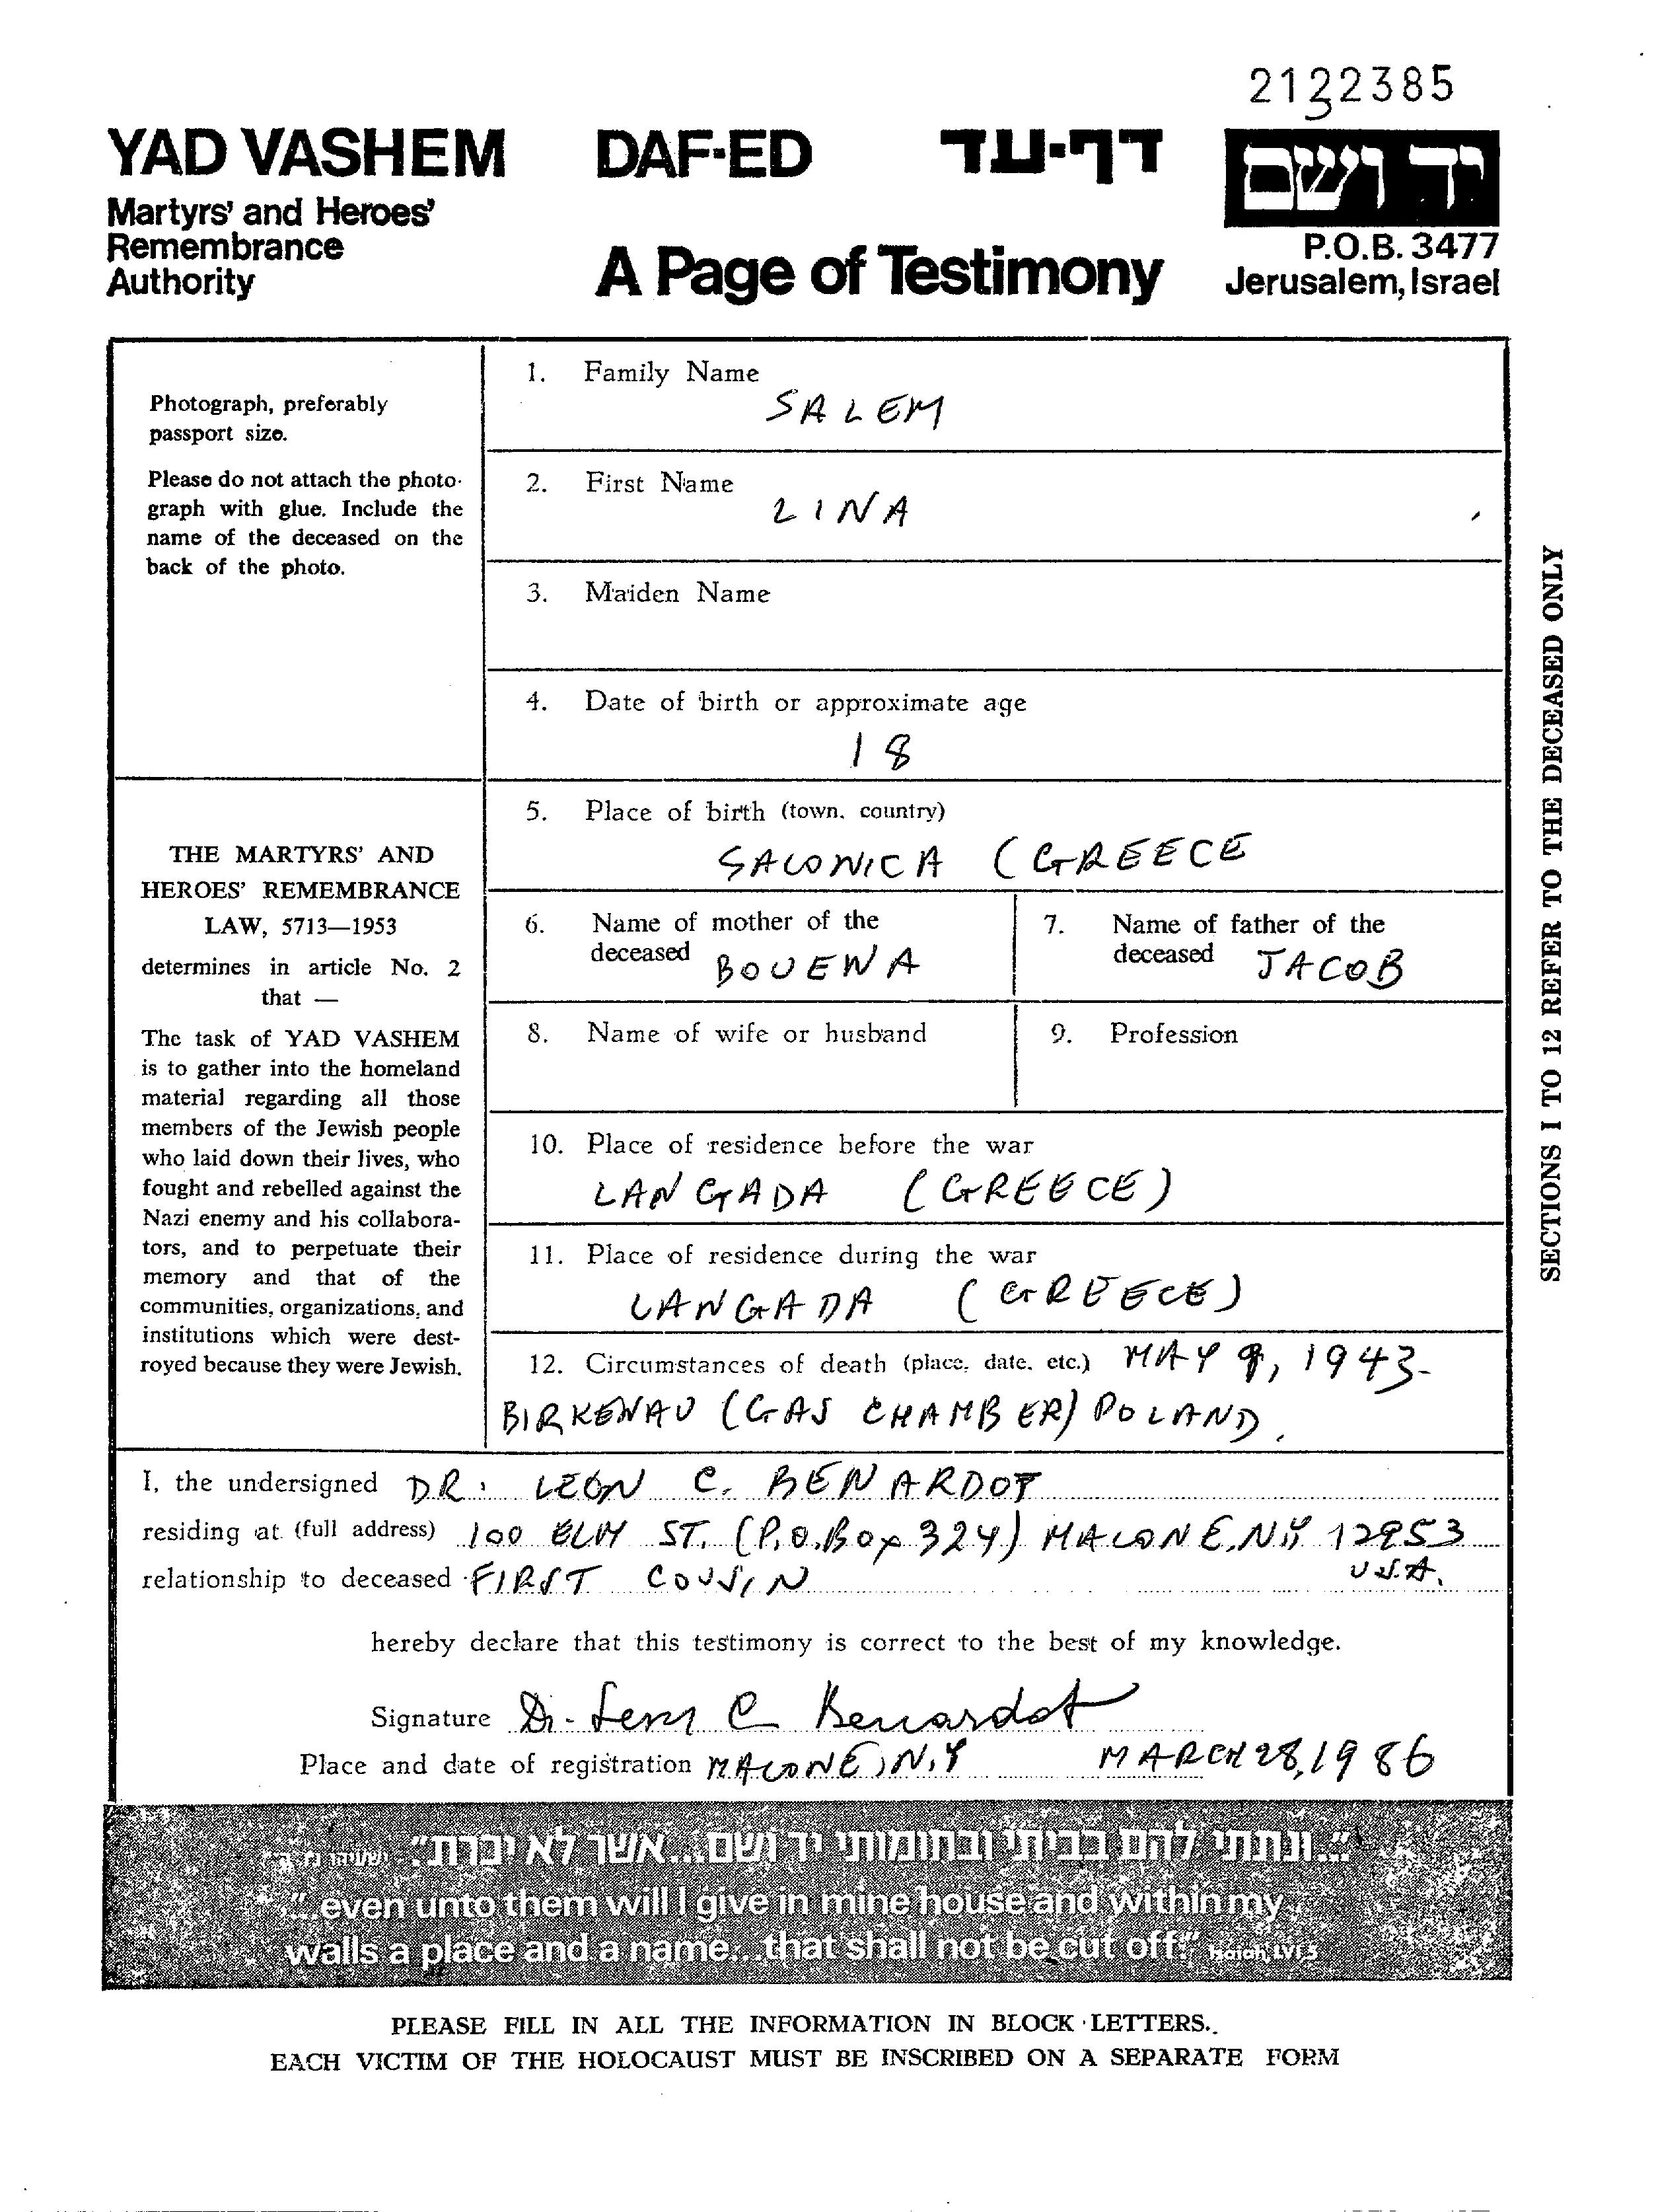 2122385
YAD VASHEM
Martyrs' and Heroes'
Remembrance
Authority
DAF-ED
דף-עד
A Page of Testimony
יד ושם
P.O.B. 3477
Jerusalem, Israel
Photograph, preferably
passport size.
Please do not attach the photo-
graph with glue. Include the
name of the deceased on the
back of the photo.
THE MARTYRS' AND
HEROES' REMEMBRANCE
LAW, 5713—1953
determines in article No. 2
that —
The task of YAD VASHEM
is to gather into the homeland
material regarding all those
members of the Jewish people
who laid down their lives, who
fought and rebelled against the
Nazi enemy and his collabora-
tors, and to perpetuate their
memory and that of the
communities, organizations, and
institutions which were dest-
royed because they were Jewish.
1. Family Name
SALEM
2. First Name
LINA
3. Maiden Name
4. Date of birth or approximate age
18
5. Place of birth (town, country)
SALONICA (GREECE
6. Name of mother of the
deceased BOUENA
7. Name of father of the
deceased JACOB
8. Name of wife or husband
9. Profession
10. Place of residence before the war
LANGADA (GREECE)
11. Place of residence during the war
LANGADA (GREECE)
12. Circumstances of death (place, date, etc.) MAY 9, 1943-
BIRKENAU (GAS CHAMBER) POLAND.
SECTIONS 1 TO 12 REFER TO THE DECEASED ONLY
I, the undersigned DR. LEON C. BENARDOT
residing at (full address) 100 ELM ST. (P.O.Box 324) MALONE, N.Y 12953
U.S.A.
relationship to deceased FIRST COUSIN
hereby declare that this testimony is correct to the best of my knowledge.
Signature Dr. Leon C Benardot
Place and date of registration MALONE, N.Y MARCH 28, 1986
"...ונתתי להם בביתי ובחומותי יד ושם...אשר לא יכרת". ישעיהו נו, ה
"...even unto them will I give in mine house and within my
walls a place and a name...that shall not be cut off:" Isaiah, LVI 5
PLEASE FILL IN ALL THE INFORMATION IN BLOCK LETTERS.
EACH VICTIM OF THE HOLOCAUST MUST BE INSCRIBED ON A SEPARATE FORM